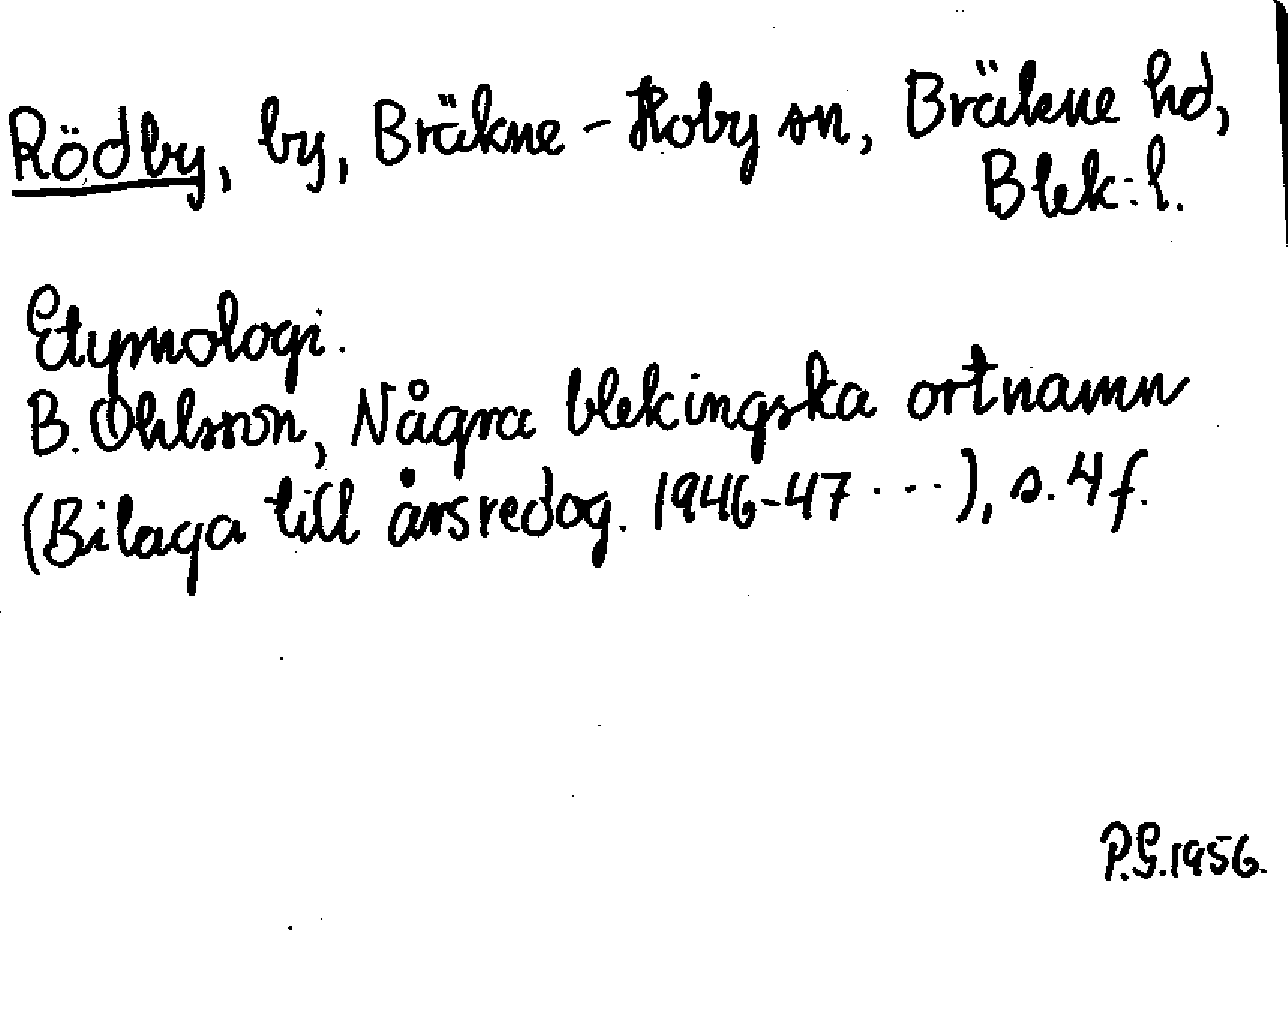 Rödby, by, Bräkne-Hoby sn, Bräkne hd,
Blek:l.
Etymologi.
B. Ohlsson, Några blekingska ortnamn
(Bilaga till årsredog. 1946-47 ...), s. 4 f.
P.G. 1956.